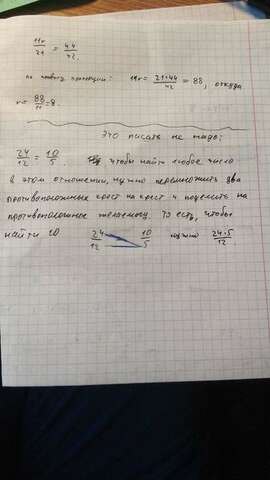 11x/21 = 44/42.
по свойству пропорции: 11x = 21·44/42 = 88, откуда
x = 88/11 = 8.
Это писать не надо:
24/12 = 10/5. чтобы найти любое число
в этом отношении, нужно перемножить два
противоположных крест на крест и поделить на
противоположное желаемому. То есть, чтобы
найти 10 24/12 10/5 нужно 24·5/12